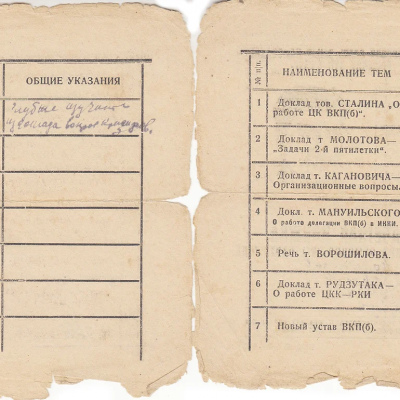 ОБЩИЕ УКАЗАНИЯ
Глубже изучать
вопрос
№ п/п.
НАИМЕНОВАНИЕ ТЕМ
1 Доклад тов. СТАЛИНА „О
работе ЦК ВКП(б)“.
2 Доклад т МОЛОТОВА—
„Задачи 2-й пятилетки“
3 Доклад т. КАГАНОВИЧА—
Организационные вопросы.
4 Докл. т. МАНУИЛЬСКОГО
О работе делегации ВКП(б) в ИККИ.
5 Речь т. ВОРОШИЛОВА.
6 Доклад т. РУДЗУТАКА —
О работе ЦКК—РКИ
7 Новый устав ВКП(б).